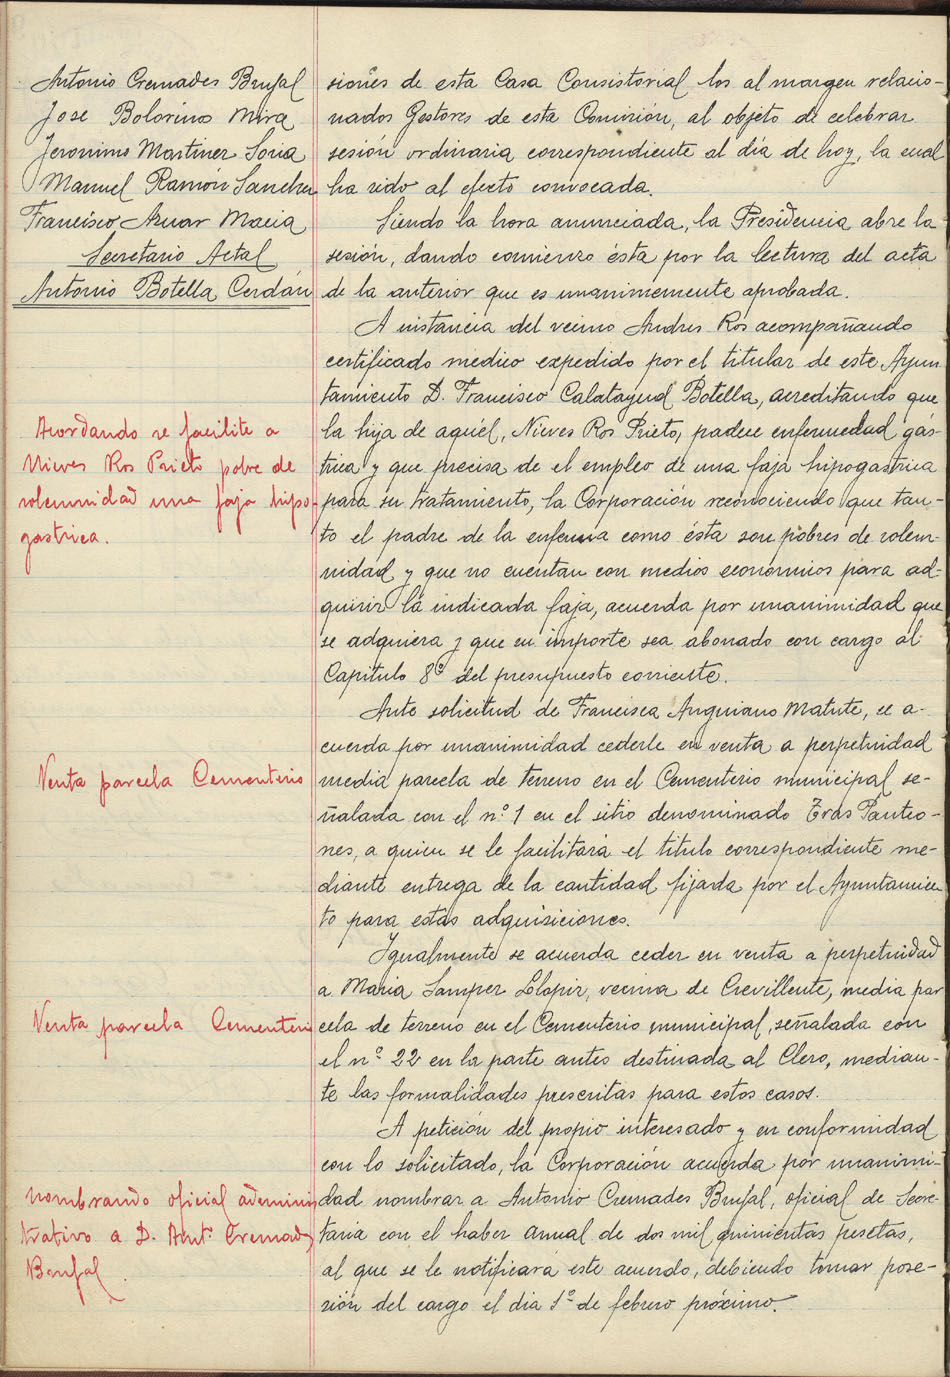 Antonio Cremades Brufal
Jose Bolorinos Mira
Jeronimo Martinez Soria
Manuel Ramón Sanchez
Francisco Aznar Macia
Secretario Actal
Antonio Botella Cerdán
siones de esta Casa Consistorial los al margen relacio-
nados Gestores de esta Comisión, al objeto de celebrar
sesión ordinaria correspondiente al día de hoy, la cual
ha sido al efecto convocada.
Siendo la hora anunciada, la Presidencia abre la
sesión, dando comienzo ésta por la lectura del acta
de la anterior que es unanimemente aprobada.
A instancia del vecino Andres Ros acompañando
certificado medico expedido por el titular de este Ayun-
tamiento D. Francisco Calatayud Botella, acreditando que
Acordando se facilite a
Nieves Ros Prieto pobre de
solemnidad una faja hipo-
gastrica.
la hija de aquél, Nieves Ros Prieto, padece enfermedad gás-
trica y que precisa de el empleo de una faja hipogastrica
para su tratamiento, la Corporación reconociendo que tan-
to el padre de la enferma como ésta son pobres de solem-
nidad y que no cuentan con medios economicos para ad-
quirir la indicada faja, acuerda por unanimidad que
se adquiera y que su importe sea abonado con cargo al
Capitulo 8º del presupuesto corriente.
Ante solicitud de Francisca Anguiano Matute, se a-
cuerda por unanimidad cederle en venta a perpetuidad
Venta parcela Cementerio
media parcela de terreno en el Cementerio municipal se-
ñalada con el nº 1 en el sitio denominado Tras Panteo-
nes, a quien se le facilitará el titulo correspondiente me-
diante entrega de la cantidad fijada por el Ayuntamien
to para estas adquisiciones.
Igualmente se acuerda ceder en venta a perpetuidad
a Maria Samper Llopis, vecina de Crevillente, media par
Venta parcela Cementerio
cela de terreno en el Cementerio municipal, señalada con
el nº 22 en la parte antes destinada al Clero, median-
te las formalidades prescritas para estos casos.
A petición del propio interesado y en conformidad
con lo solicitado, la Corporación acuerda por unanimi-
nombrando oficial adminis
trativo a D. Antº Cremades
Brufal
dad nombrar a Antonio Cremades Brufal, oficial de Secre-
taria con el haber anual de dos mil quinientas pesetas,
al que se le notificará este acuerdo, debiendo tomar pose-
sión del cargo el dia 1º de febrero próximo.